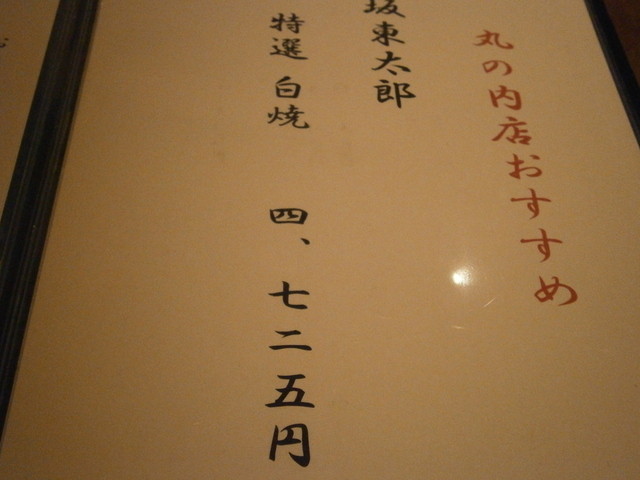 丸の内店おすすめ
坂東太郎
特選 白焼 四、七二五円